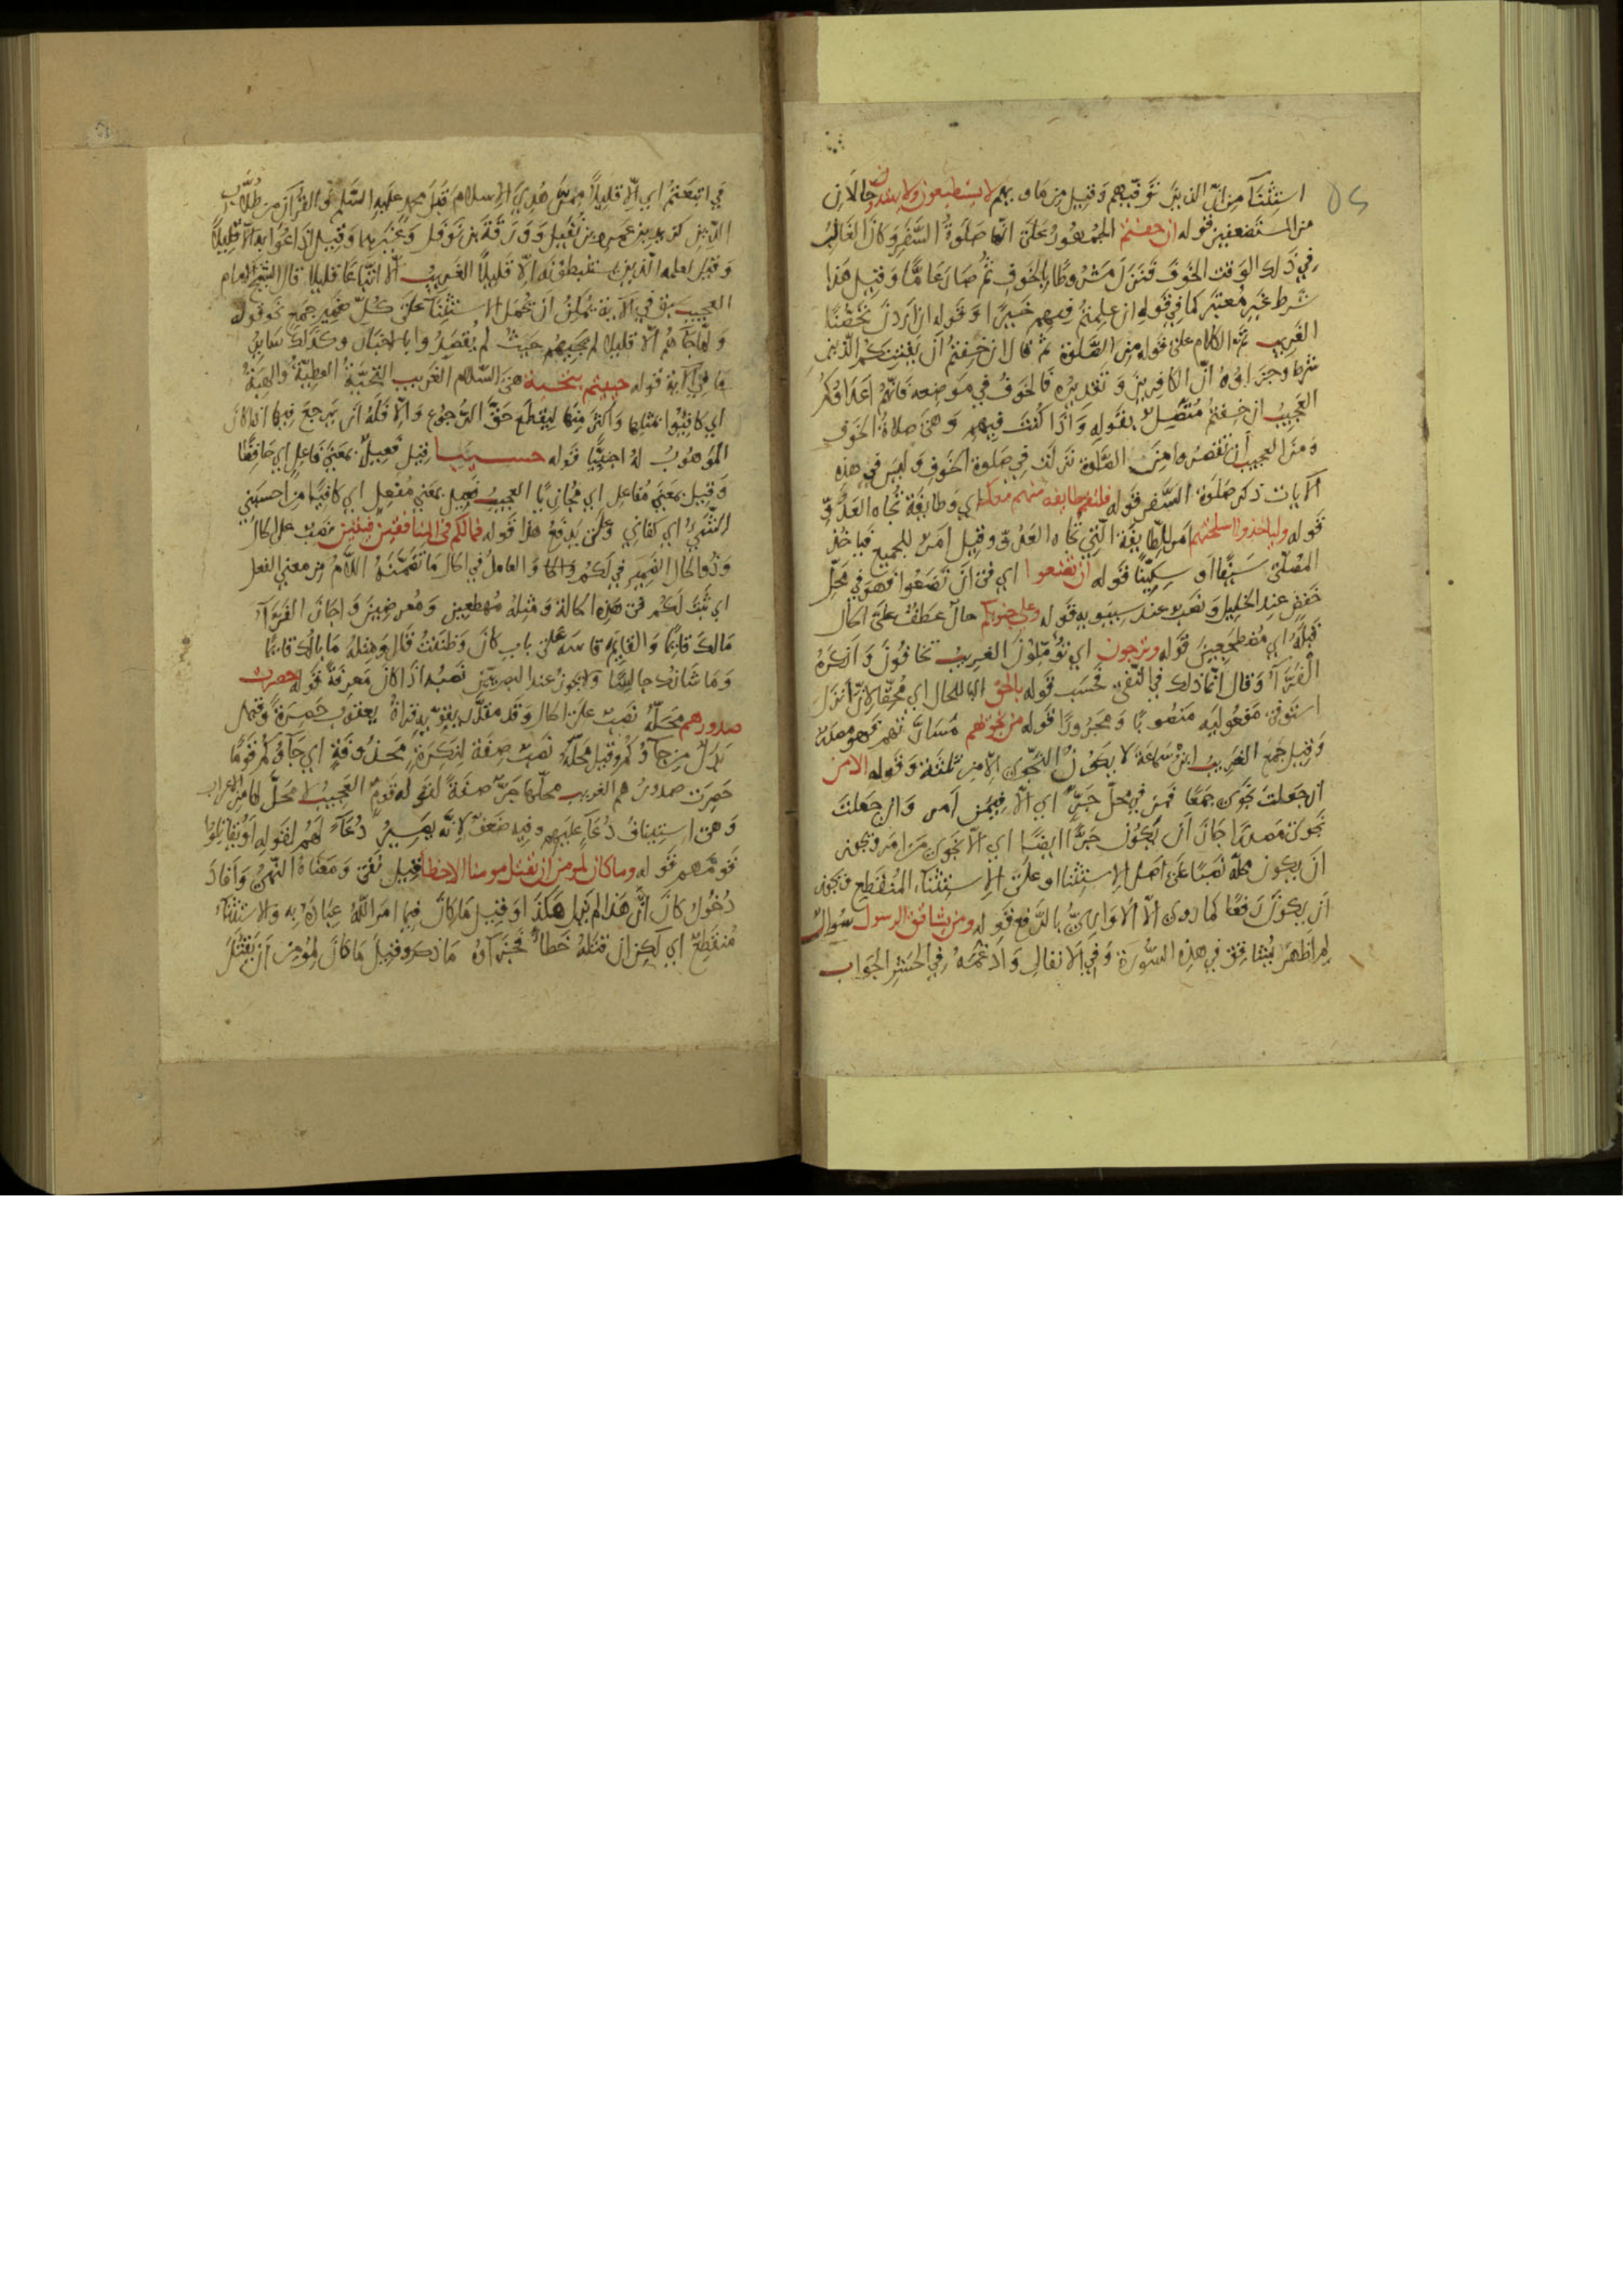 استثنآ من انّ الذين توفيهم وقيل من ماويهم لا يستطيعون ولا يهتدون حالان
من المستضعفين قوله ان خفتم الجمهور على انها صلوة السفر وكان الغالب
في ذلك الوقت الخوف فنزل مشروطا بالخوف ثم صار عامّا وقيل هذا
شرط غير معتبر كما في قوله ان علمتم فيهم خيرا وقوله ان اردن تحصّنا
الغريب تم الكلام على قوله من الصّلوة ثم قال ان خفتم ان يفتنكم الذين
شرط وجزاوه انّ الكافرين وتقديره فالخوف في موضعه فانهم اعداؤكم
العجيب ان خفتم متصل بقوله واذا كنت فيهم وهى صلاة الخوف
ومن العجيب أن تقصروا من الصّلوة نزلت في صلوة الخوف وليس في هذه
الآيات ذكر صلوة السّفر قوله فلتقم طايفة منهم معك اي وطايفة تجاه العدوّ
قوله ولياخذوا اسلحتهم امر للطايفة التي تجاه العدوّ وقيل امر للجميع فياخذ
المصلّى سيفا او سكينا قوله ان تضعوا اي في ان تضعوا فهو في محلّ
خفض عند الخليل ونصب عند سيبويه قوله وعلى جنوبكم حال عطف على الحال
قبله اي مضطجعين قوله وترجون اي تؤمّلون الغريب تخافون وانكره
الفرّآ وقال انما ذلك في النّفى فحسب قوله بالحق البا للحال اي محقّا لانّ انزل
استوفى مفعوليه منصوبا ومجرورا قوله من نجويهم مسارّتهم فهو مصدر
وقيل جمع الغريب ابن سماعة لا يكون النّجوى الا من ثلثة وقوله الا من
ان جعلت نجوى جمعا فمن في محلّ جرّ اي الّا فيمن امر وان جعلت
نجوى مصدرا جاز أن يكون جرّا ايضا اي الّا نجوى من امر ويجوز
ان يكون محلّه نصبا على اصل الاستثنا او على الاستثناء المنقطع ويجوز
ان يكون رفعا كما روى الّا الاواريّ بالرّفع قوله ومن يشاقق الرسول سوال
لم اظهر يشاقق في هذه السّورة وفي الانفال وادغمه في الحشر الجواب
في اتبعتم اي الّا قليلا ممن هدي للاسلام قبل محمد عليه السّلم والقرآن من طلاب
الدّين كزيد بن عمرو بن نفيل وورقة بن نوفل وغيرهما وقيل اذاعوا به الّا قليلا
وقيل لعلمه الّذين يستنبطونه الّا قليلا الغريب الّا اتباعا قليلا قال الشيخ الامام
العجيب في الآية يمكن ان يحمل الاستثنآ على كلّ ضمير جمع نحو قوله
ولما جآهم الّا قليلا لم يجبهم حيث لم يقصدوا بالاخبار وكذلك ساير
ما في الآية قوله حييتم بتحية هى السّلام الغريب التحيّة العطيّة والهبة
اي كافئوا بمثلها واكثر منها ليقطع حقّ الرّجوع والّا فله ان يرجع فيها اذا كان
الموهوب له اجنبيّا قوله حسيبا قيل فعيل بمعنى فاعل اي حافظا
وقيل بمعنى مفاعل اي مجازيا العجيب فعيل بمعنى مفعل اي كافيا من احسبني
الشّيء اي كفاني قوله فمالكم في المنافقين فئتين نصب على الحال
وذو الحال الضمير في لكم والعامل في الحال ما تضمّنه اللّام من معنى الفعل
اي ثبت لكم في هذه الحالة ومثله مهطعين ومعرضين واجاز الفرّآ
مالك قائما والقايم قاسه على باب كان وظننت قال ومثله ما بالك قائما
وما شانك جالسا ولا يجوز عند البصريّين نصبه اذا كان معرفة قوله حصرت
صدورهم محلّه نصب على الحال وقد مقدّر يقوّيه قراة يعقوب حصرة وقيل
بدل من جآؤكم وقيل محلّه نصب صفة لنكرة محذوفة اي جآؤكم قوما
حصرت صدورهم الغريب محلّها جرّ صفة لقوله قوم العجيب لا محلّ لها من الاعراب
وهى استيناف دعآ عليهم وفيه ضعف لانّه يصير دعآء لهم لقوله او يقاتلوا
قومهم قوله وما كان لمومن ان يقتل مومنا الا خطا قيل نفى ومعناه النّهي وافاد
دخول كان انّ هذا لم يزل هكذا وقيل ما كان فيما امر اللّه عباده به والاستثنآء
منقطع اي لكن ان قتله خطأ فجزآؤه ما ذكر وقيل ما كان لمومن ان يقتل